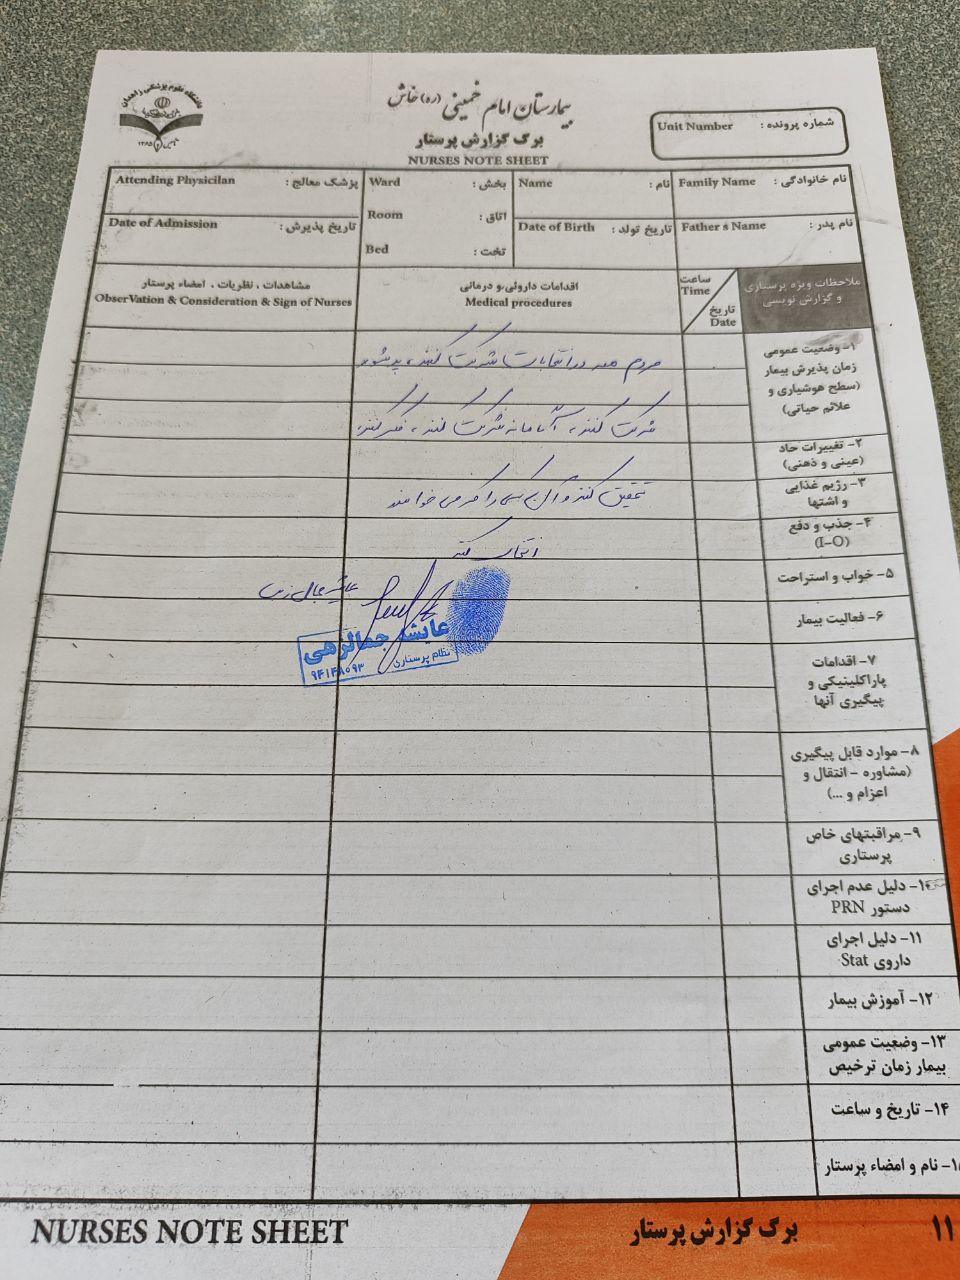 دانشگاه علوم پزشکی زاهدان
۱۳۶۵
بیمارستان امام خمینی (ره) خاش
برگ گزارش پرستار
NURSES NOTE SHEET
Unit Number شماره پرونده :
Family Name نام خانوادگی :
Name نام :
Ward بخش :
Attending Physicilan پزشک معالج :
Father s Name نام پدر :
Date of Birth تاریخ تولد :
Room اتاق :
Bed تخت :
Date of Admission تاریخ پذیرش :
ملاحظات ویژه پرستاری
و گزارش نویسی
ساعت
Time
تاریخ
Date
اقدامات داروئی و درمانی
Medical procedures
مشاهدات ، نظریات ، امضاء پرستار
ObserVation & Consideration & Sign of Nurses
۱- وضعیت عمومی
زمان پذیرش بیمار
(سطح هوشیاری و
علائم حیاتی)
۲- تغییرات حاد
(عینی و ذهنی)
۳- رژیم غذایی
و اشتها
۴- جذب و دفع
(I-O)
۵- خواب و استراحت
۶- فعالیت بیمار
۷- اقدامات
پاراکلینیکی و
پیگیری آنها
۸- موارد قابل پیگیری
(مشاوره - انتقال و
اعزام و ...)
۹- مراقبتهای خاص
پرستاری
۱۰- دلیل عدم اجرای
دستور PRN
۱۱- دلیل اجرای
داروی Stat
۱۲- آموزش بیمار
۱۳- وضعیت عمومی
بیمار زمان ترخیص
۱۴- تاریخ و ساعت
- نام و امضاء پرستار
مردم در انتخابات شرکت کنند ،
شرکت کنند ، شرکت کنند ، فکر کنند ،
تحقیق کنند و آن کسی را که می خواهند
انتخاب کنند
عایشه جمال زهی
عایشه جمالزهی
نظام پرستاری
NURSES NOTE SHEET
برگ گزارش پرستار
۱۱